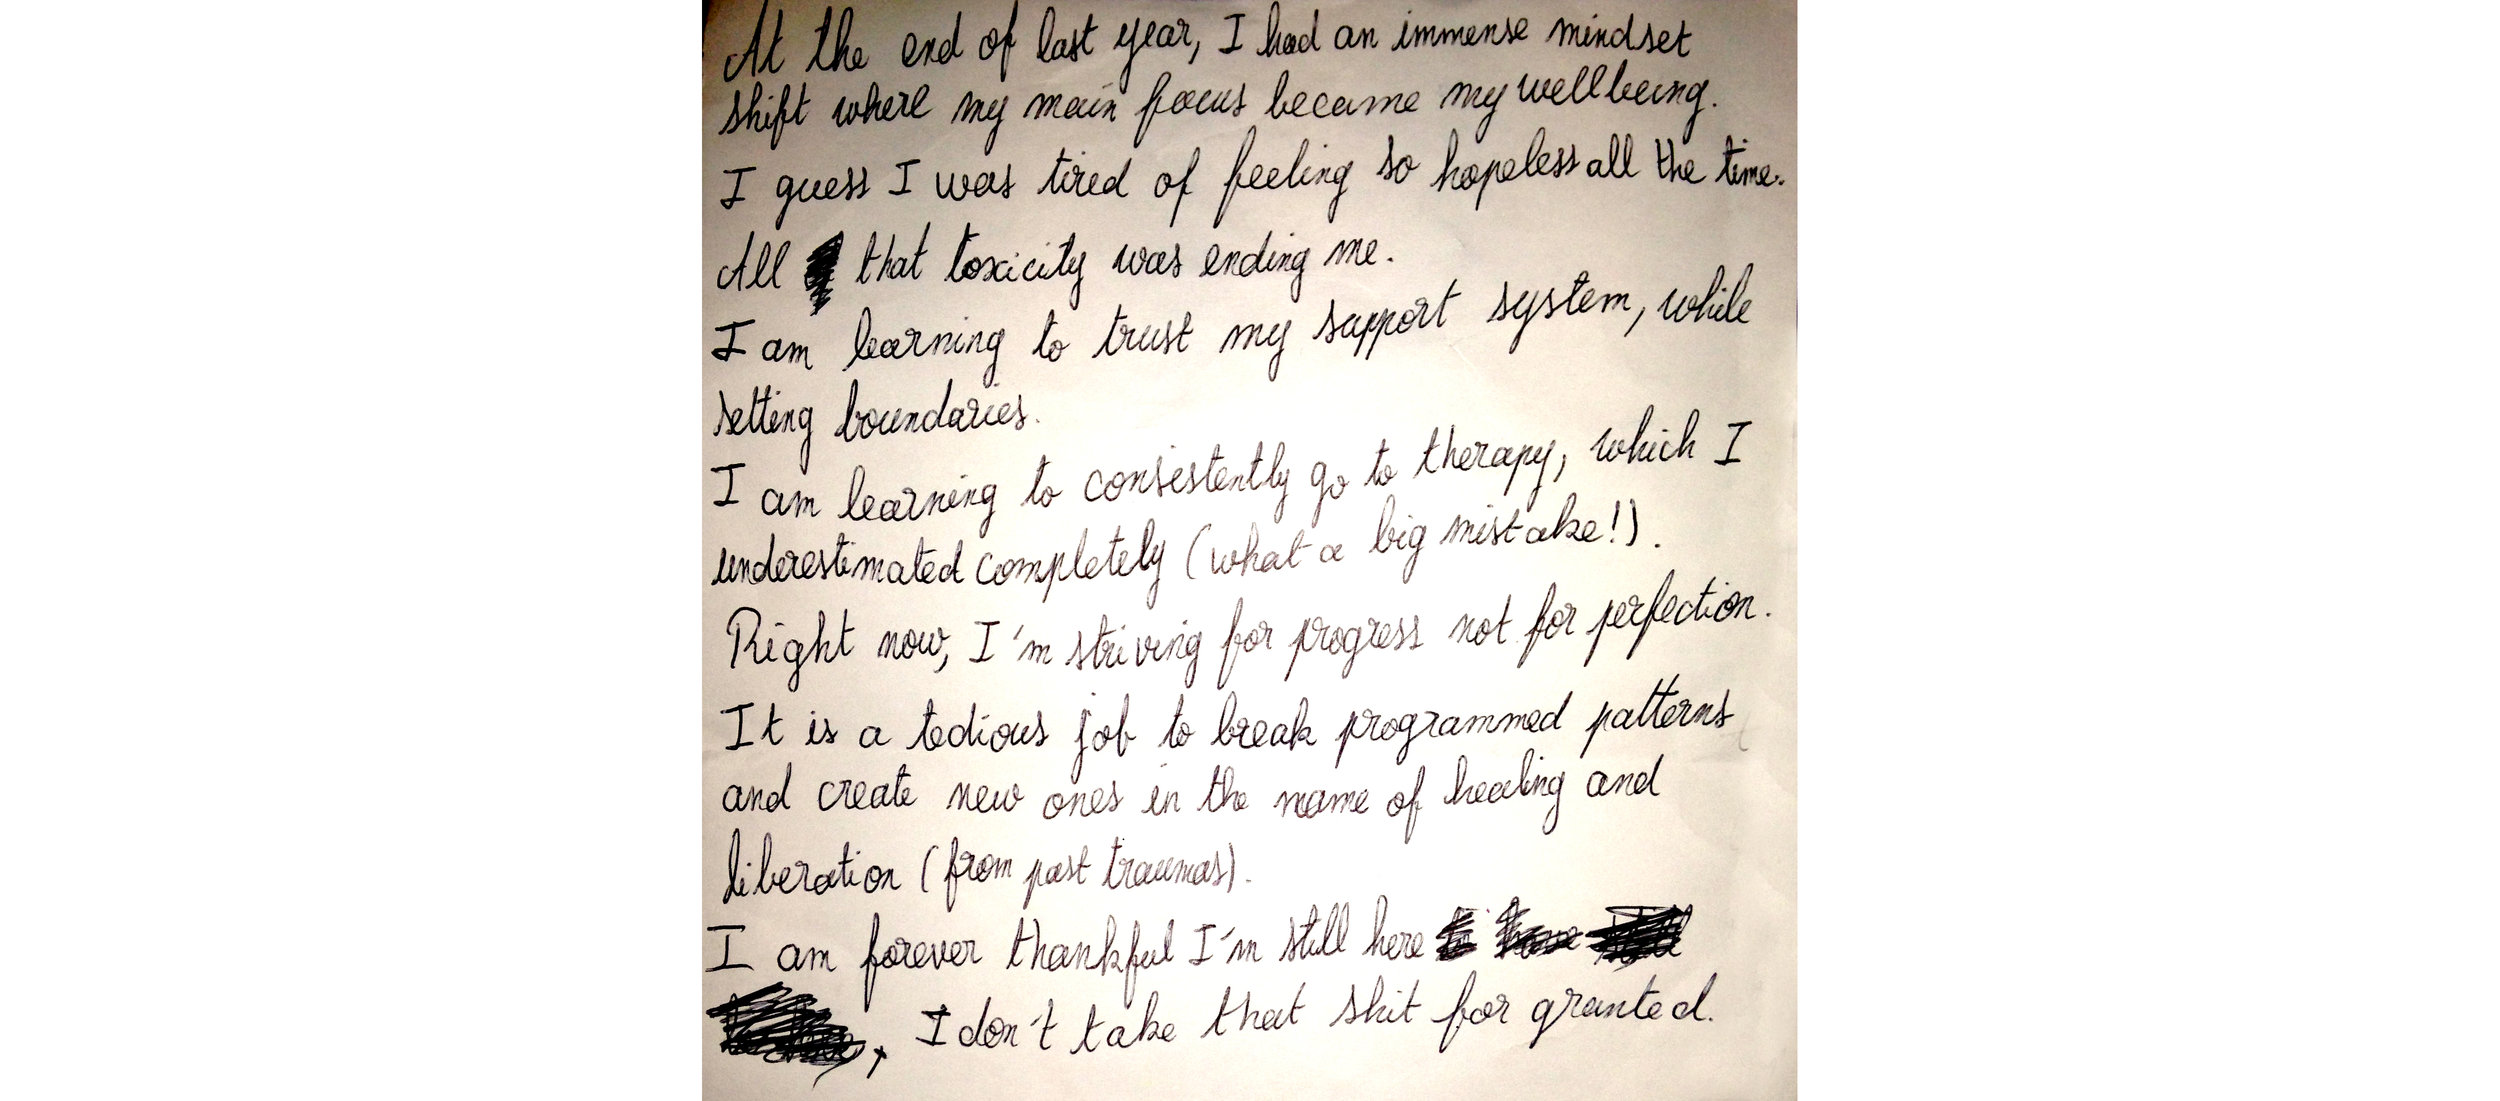 At the end of last year, I had an immense mindset
shift where my main focus became my wellbeing.
I guess I was tired of feeling so hopeless all the time.
All that toxicity was ending me.
I am learning to trust my support system, while
setting boundaries.
I am learning to consistently go to therapy, which I
underestimated completely (what a big mistake!).
Right now, I'm striving for progress not for perfection.
It is a tedious job to break programmed patterns
and create new ones in the name of healing and
liberation (from past traumas).
I am forever thankful I'm still here
, I don't take that shit for granted.